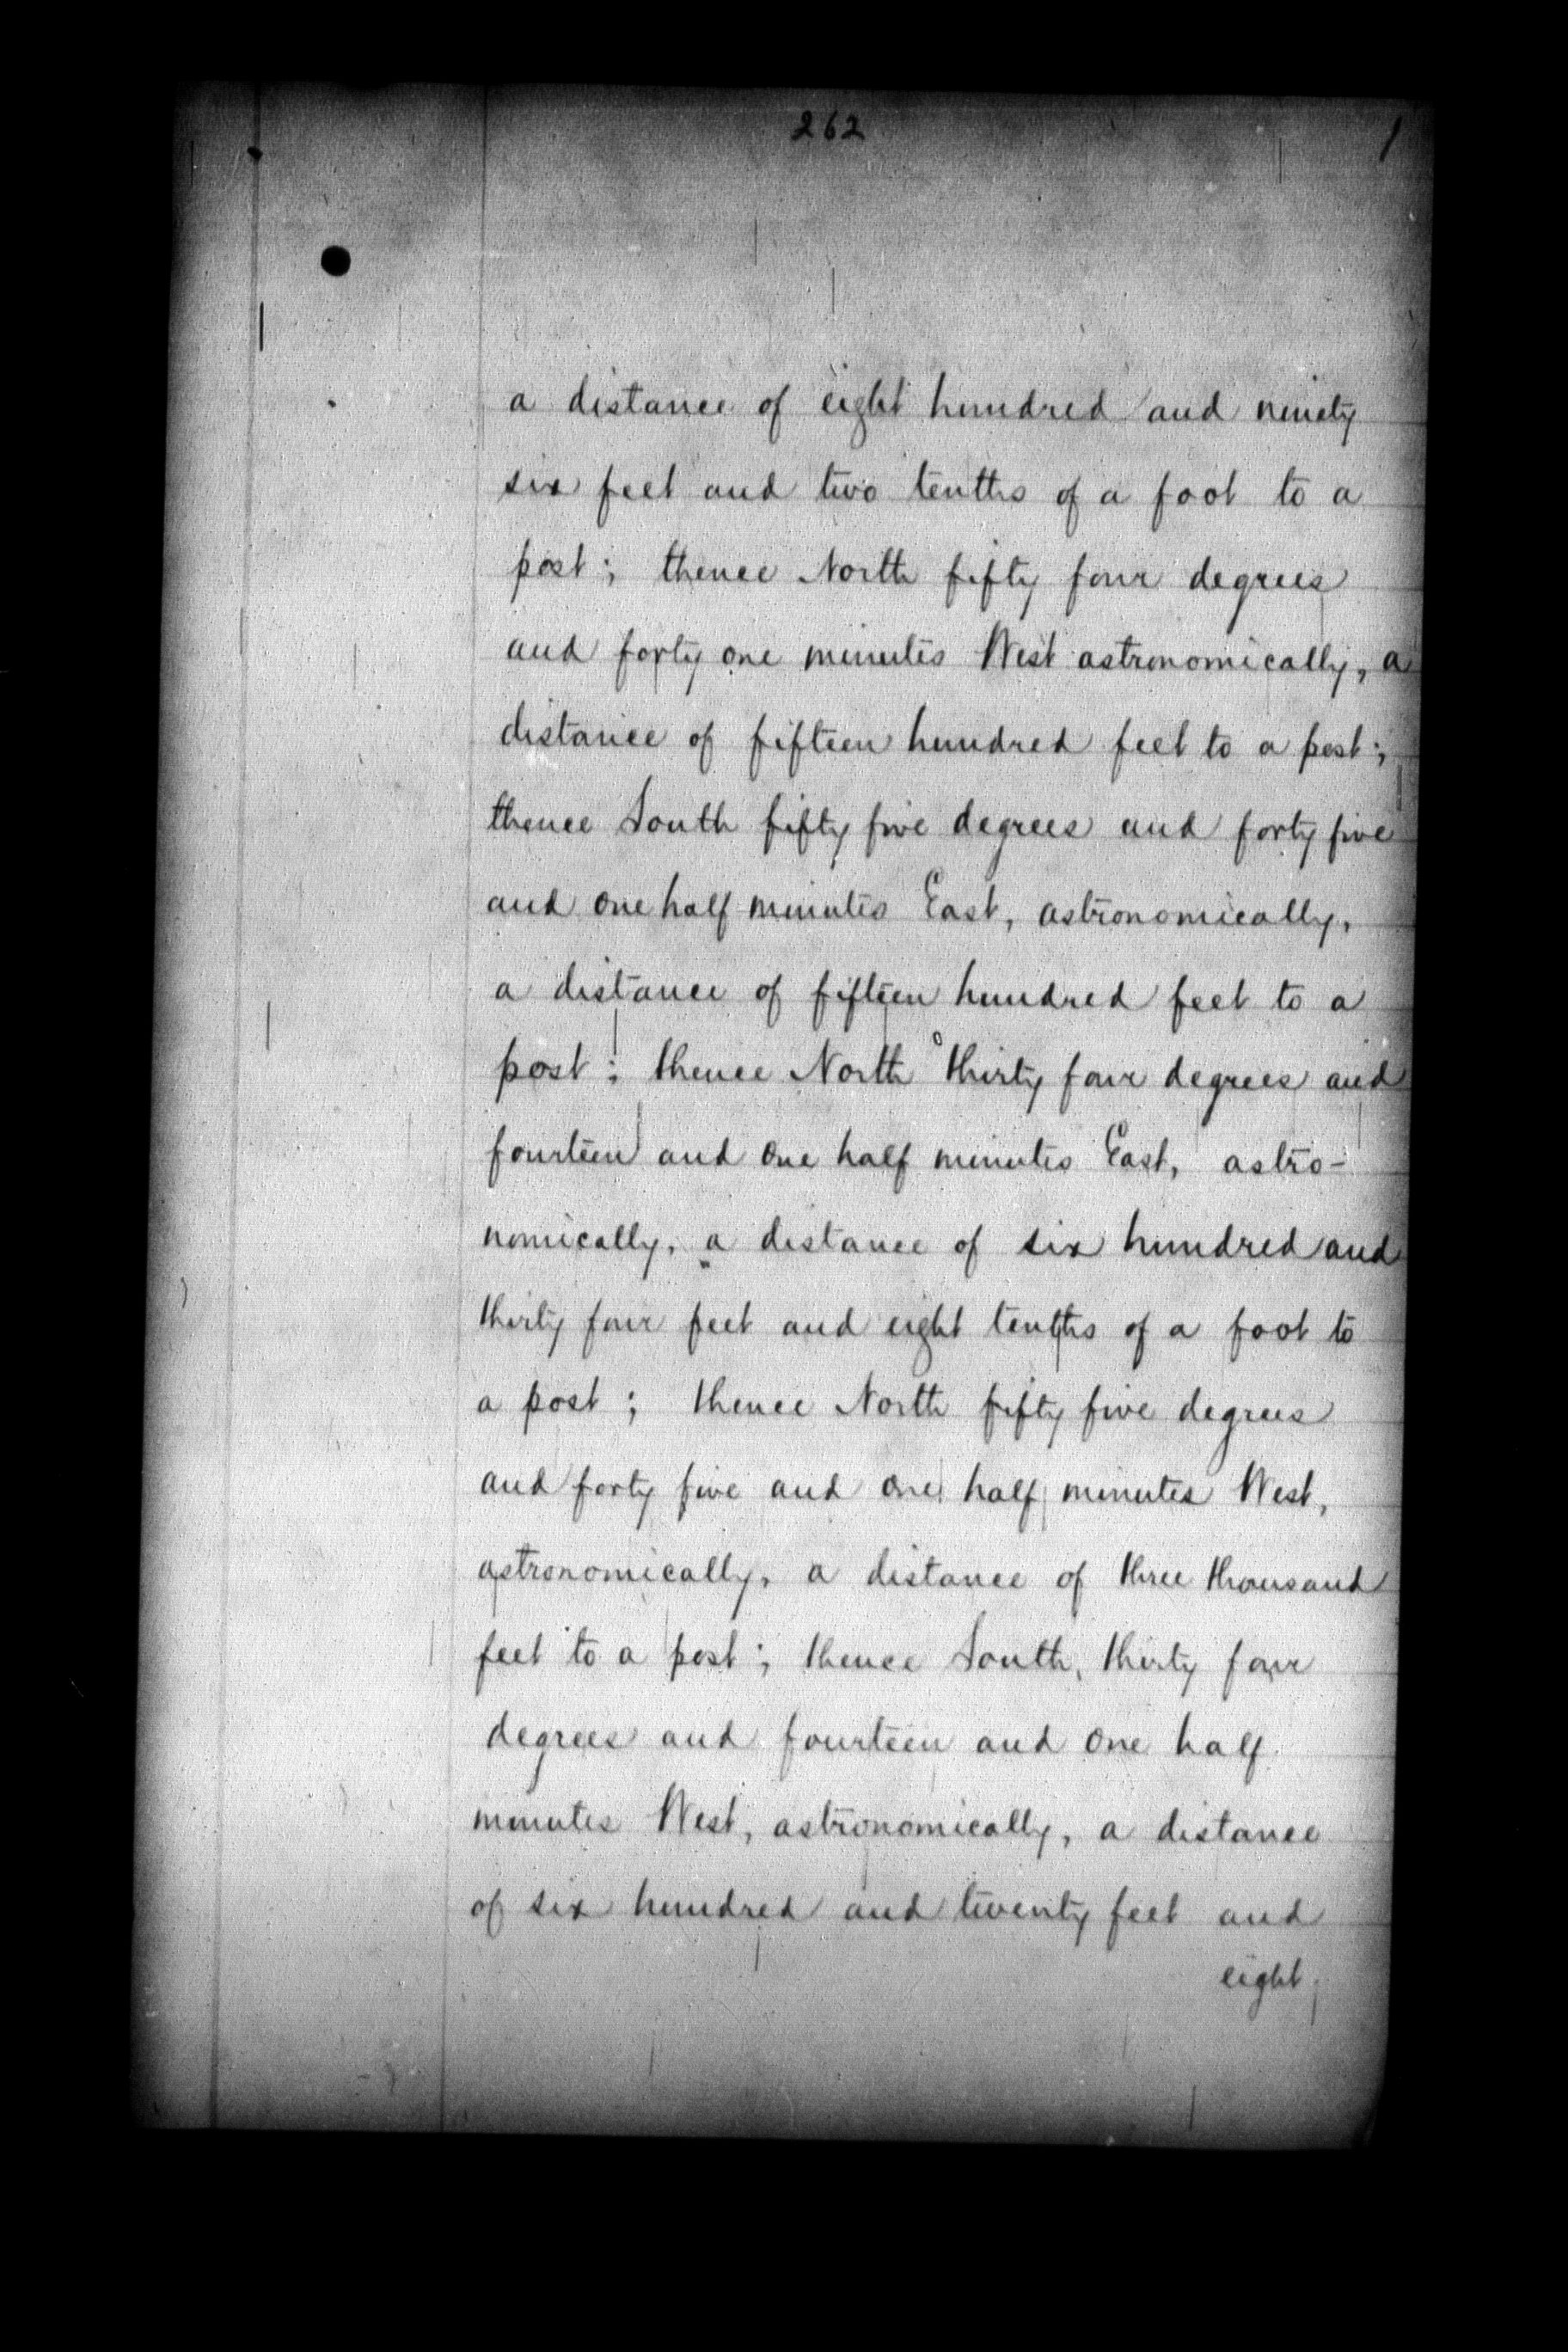 262
a distance of eight hundred and ninety
six feet and two tenths of a foot to a
post; thence North fifty four degrees
and forty one minutes West astronomically, a
distance of fifteen hundred feet to a post;
thence South fifty five degrees and forty five
and one half minutes East, astronomically,
a distance of fifteen hundred feet to a
post; thence North thirty four degrees and
fourteen and one half minutes East, astro-
nomically, a distance of six hundred and
thirty four feet and eight tenths of a foot to
a post; thence North fifty five degrees
and forty five and one half minutes West,
astronomically, a distance of three thousand
feet to a post; thence South, thirty four
degrees and fourteen and one half
minutes West, astronomically, a distance
of six hundred and twenty feet and
eight